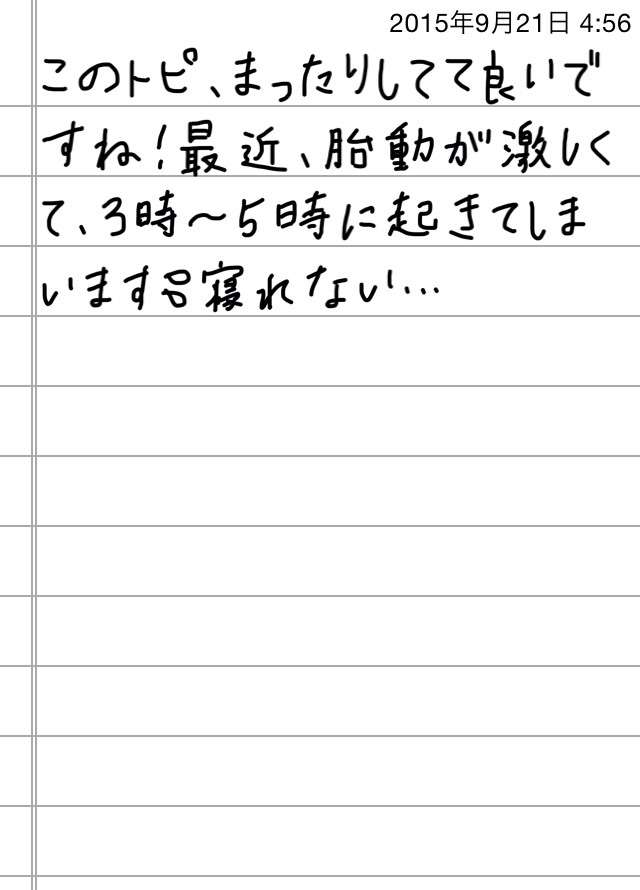 2015年9月21日 4:56
このトピ、まったりしてて良いで
すね!最近、胎動が激しく
て、3時〜5時に起きてしま
います 寝れない…